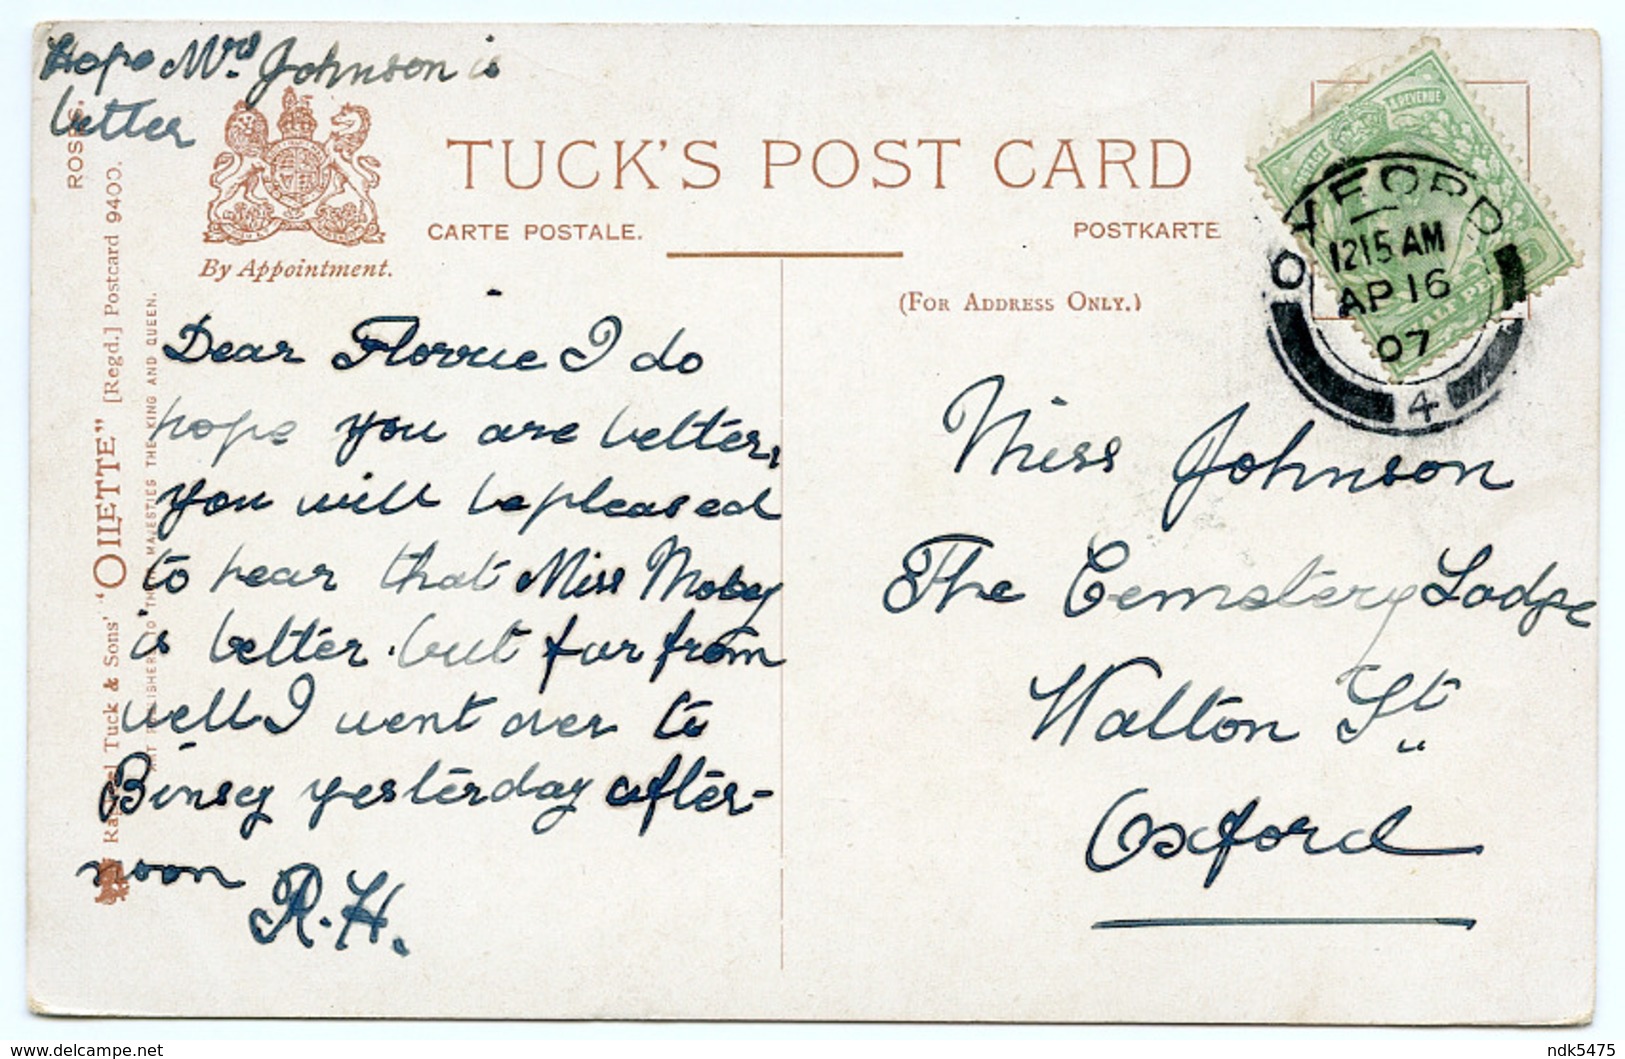 Hope Mrs Johnson is
better
TUCK'S POST CARD
CARTE POSTALE.
POSTKARTE
By Appointment.
(FOR ADDRESS ONLY.)
POSTAGE & REVENUE
OXFORD
1215 AM
AP 16
07
4
Dear Florrie I do
hope you are better,
you will be pleased
to hear that Miss Mobey
is better but far from
well I went over to
Binsey yesterday after-
noon
R.H.
Miss Johnson
The Cemetery Lodge
Walton St
Oxford
Raphael Tuck & Sons' "OILETTE" [Regd.] Postcard 9400.
ART PUBLISHERS TO THEIR MAJESTIES THE KING AND QUEEN.
delcampe.net
ndk5475